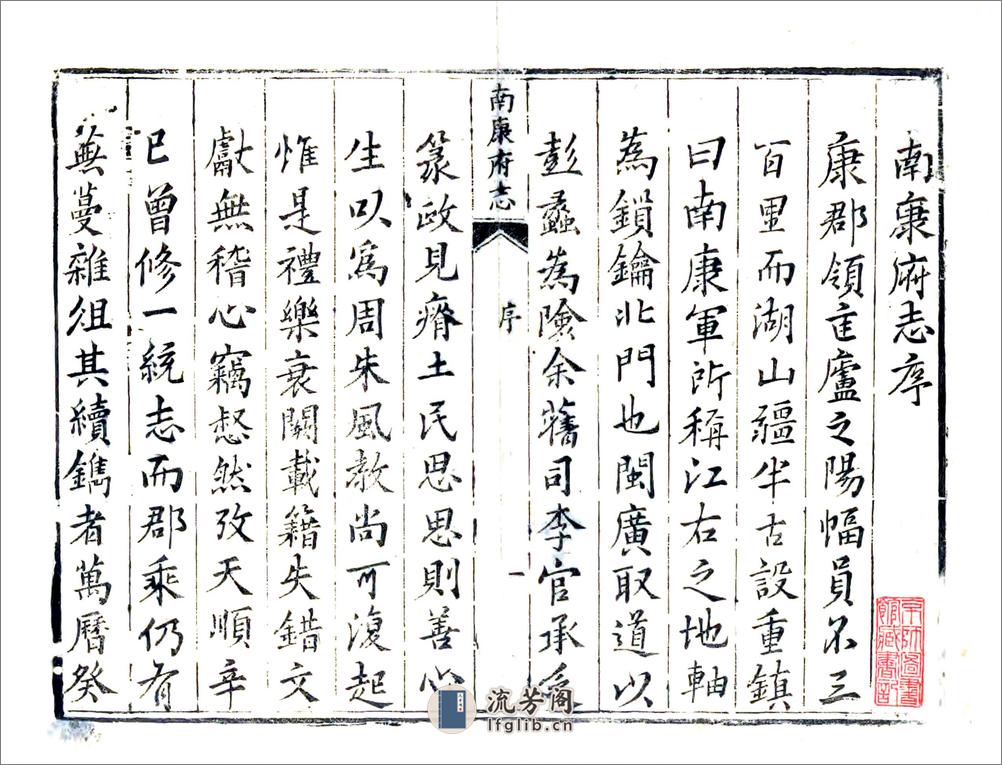 南康府志序
康郡領匡廬之陽幅員不三
百里而湖山疆半古設重鎮
曰南康軍所稱江右之地軸
為鎖鑰北門也閩廣取道以
彭蠡為險余舊司李官承乏
南康府志
序
一
篆政見瘠土民思思則善心
生以為周朱風教尚可復起
惟是禮樂衰闕載籍失錯文
獻無稽心竊惄然攷天順辛
巳曾修一統志而郡乘仍有
蕪蔓雜俎其續鐫者萬曆癸
京師圖書
館藏書記
流芳阁
lfglib.cn